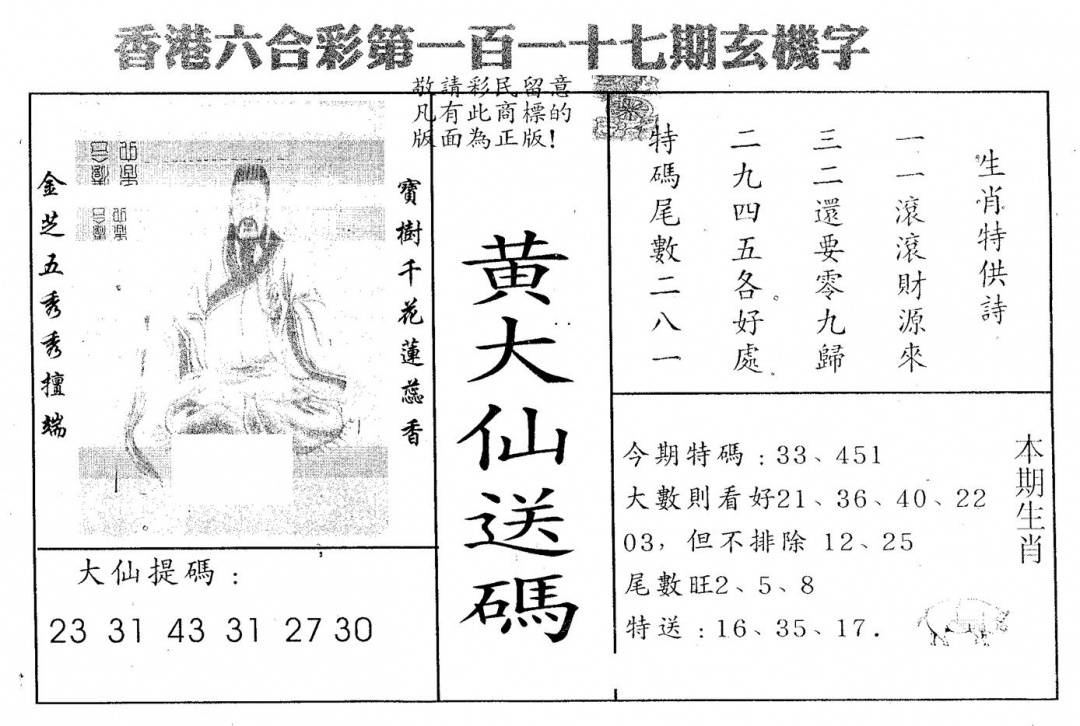 香港六合彩第一百一十七期玄機字
敬請彩民留意
凡有此商標的
版面為正版!
金芝五秀秀擅端
寶樹千花蓮蕊香
黃大仙送碼
生肖特供詩
一一滾滾財源來
三二還要零九歸
二九四五各好處
特碼尾數二八一
大仙提碼:
23 31 43 31 27 30
今期特碼:33、451
大數則看好21、36、40、22
03,但不排除 12、25
尾數旺2、5、8
特送:16、35、17.
本期生肖